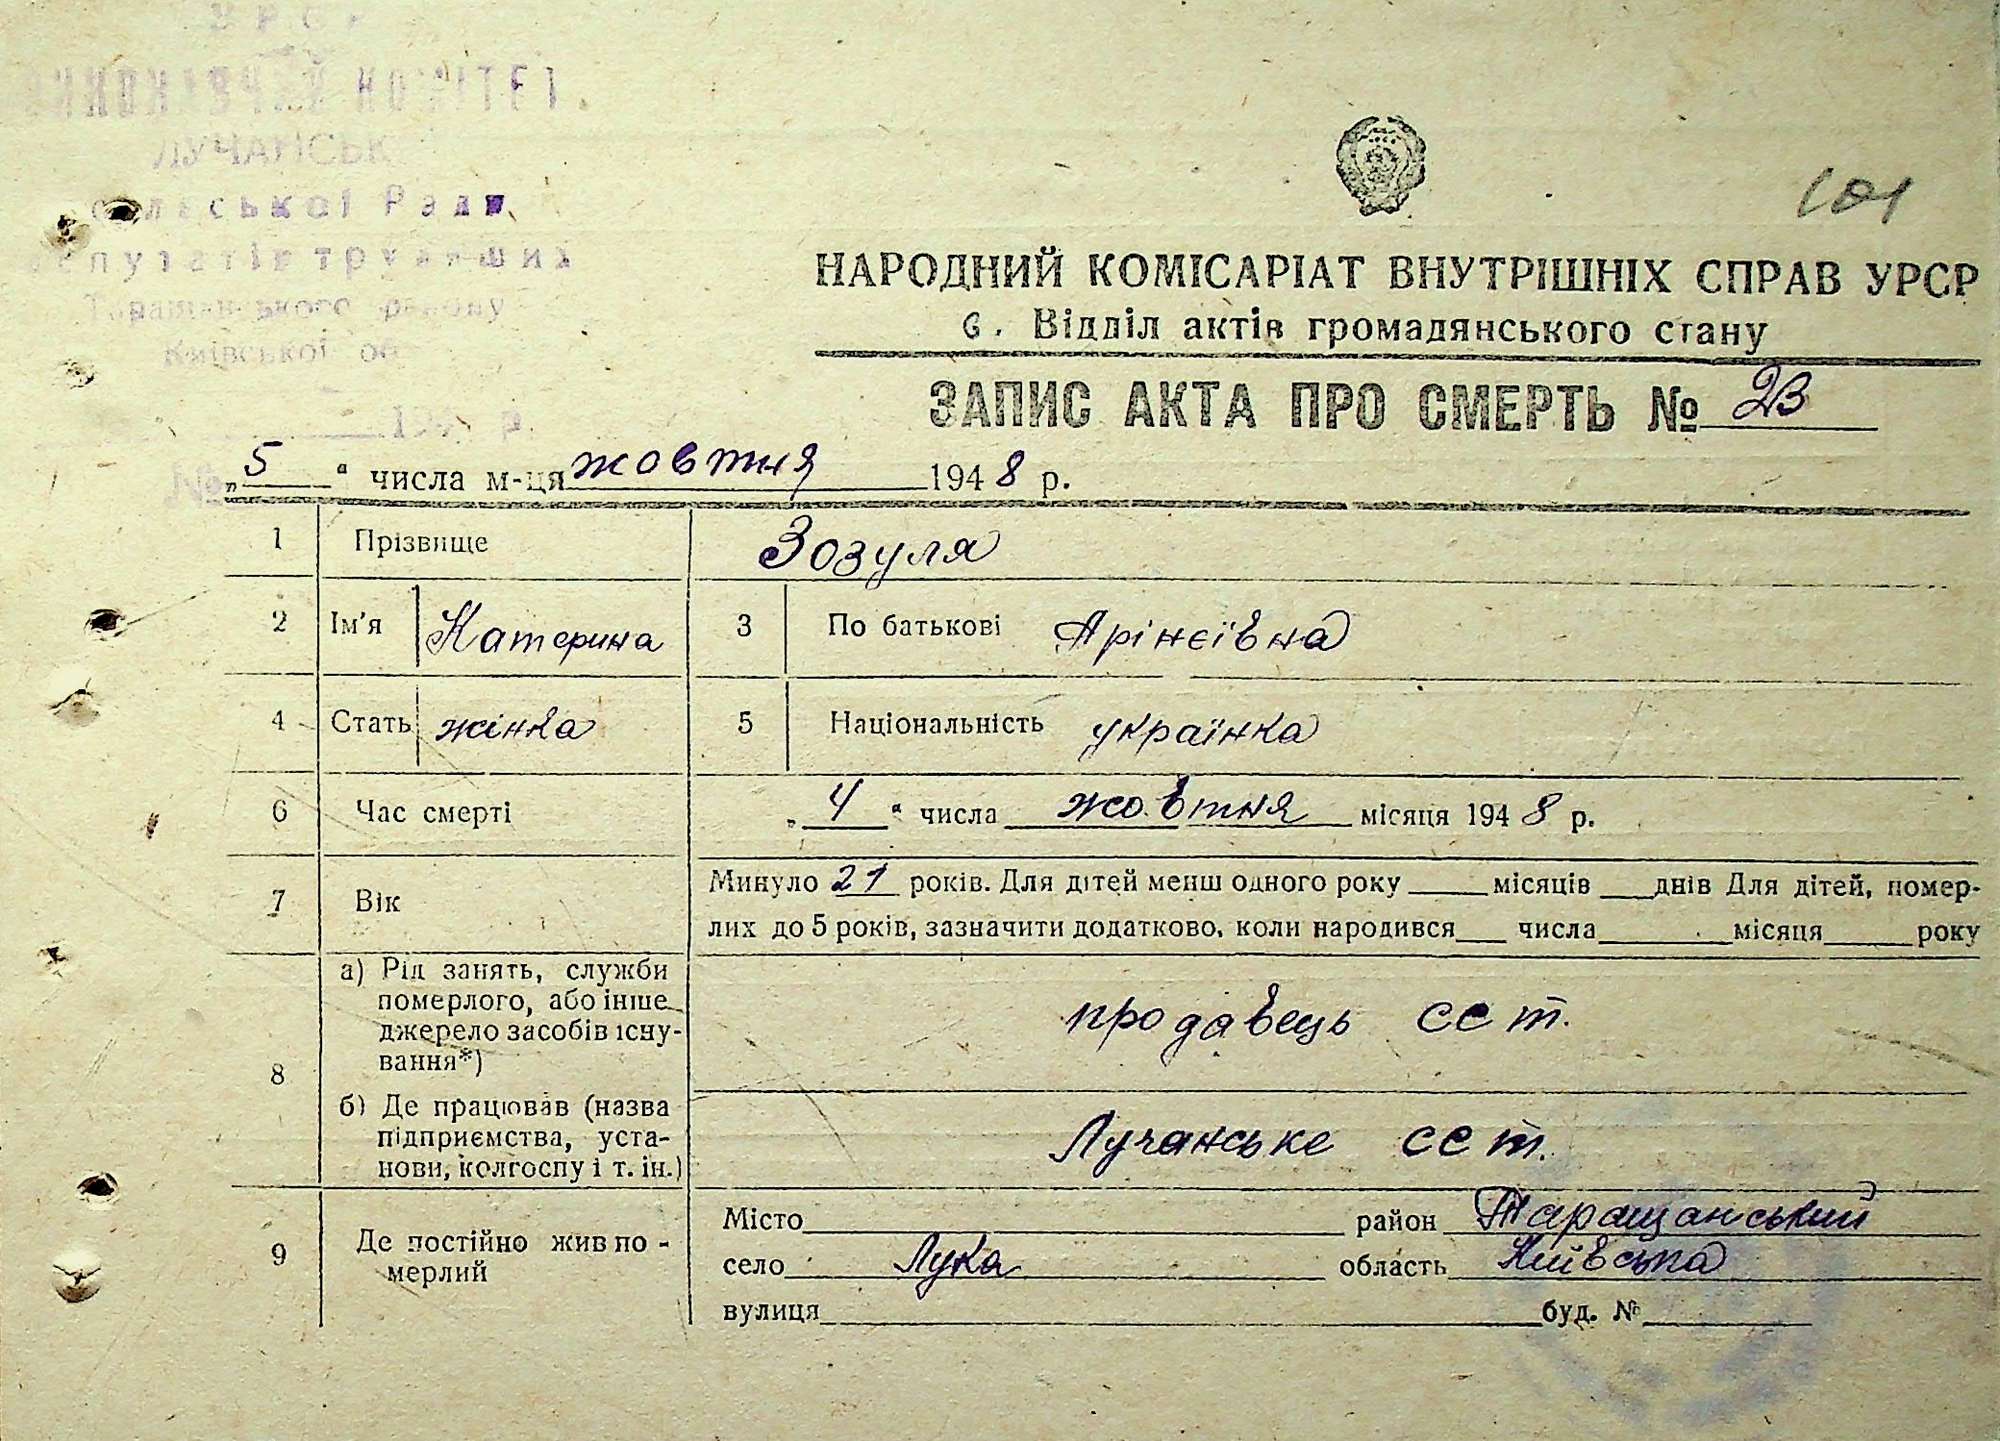 УРСР
ВИКОНАВЧИЙ КОМІТЕТ
ЛУЧАНСЬК
сільської Ради
депутатів трудящих
Таращанського району
Київської об
101
НАРОДНИЙ КОМІСАРІАТ ВНУТРІШНІХ СПРАВ УРСР
6. Відділ актів громадянського стану
ЗАПИС АКТА ПРО СМЕРТЬ № 23
№
„5“ числа м-ця жовтня 1948 р.
1 Прізвище Зозуля
2 Ім'я Катерина 3 По батькові Арінєівна
4 Стать жінка 5 Національність українка
6 Час смерті „4“ числа жовтня місяця 1948 р.
7 Вік Минуло 21 років. Для дітей менш одного року ____ місяців ____ днів Для дітей, помер-
лих до 5 років, зазначити додатково, коли народився ____ числа ____ місяця ____ року
8 а) Рід занять, служби
померлого, або інше
джерело засобів існу-
вання*)
продавець сст.
б) Де працював (назва
підприємства, уста-
нови, колгоспу і т. ін.)
Лучанське сст.
9 Де постійно жив по-
мерлий
Місто ____ район Таращанський
село Лука область Київська
вулиця ____ буд. № ____